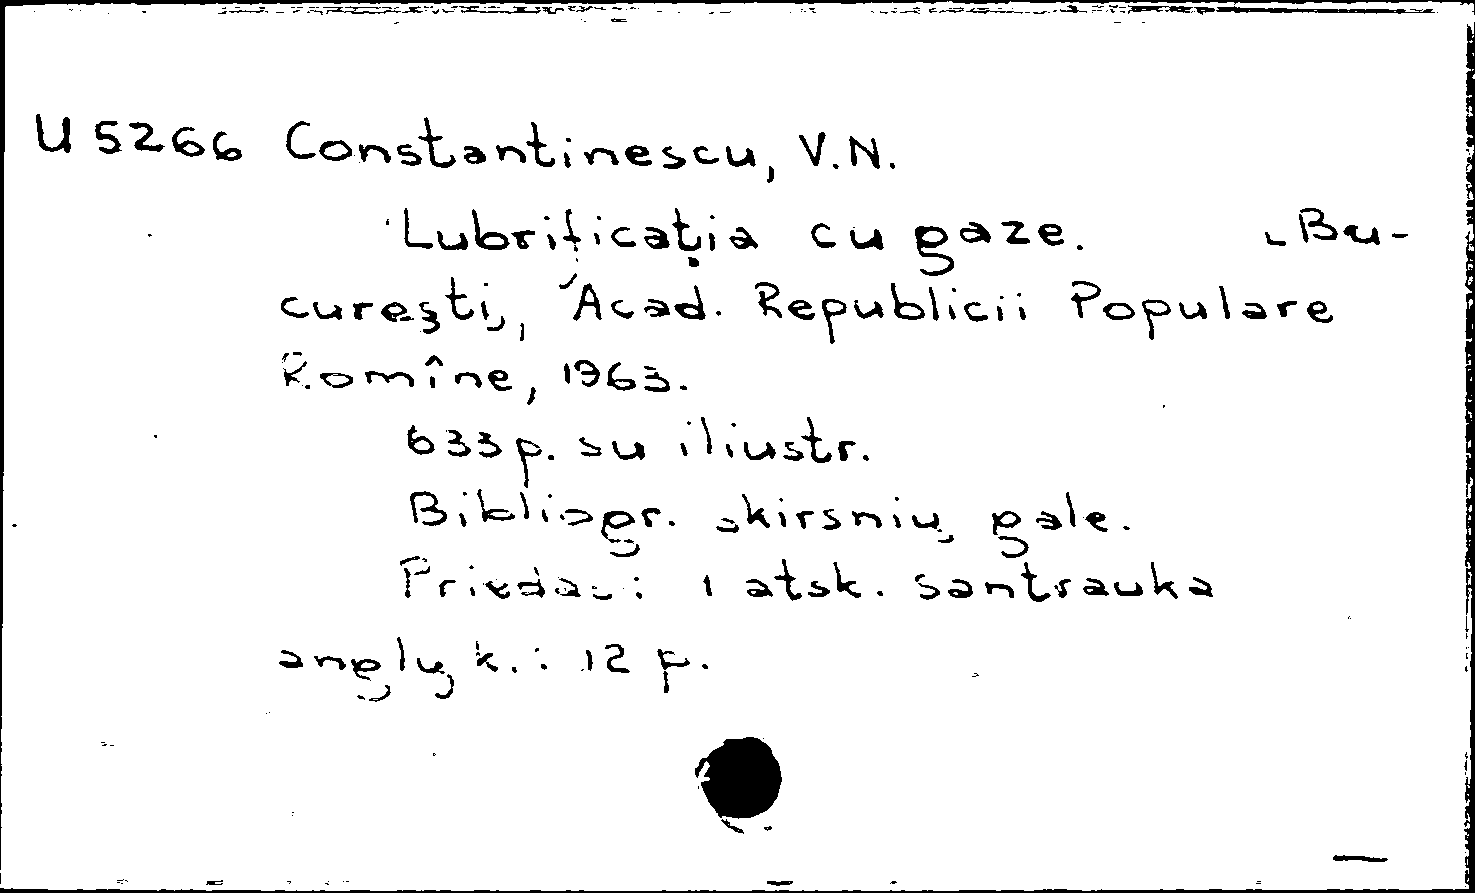 U 5266 Constantinescu, V.N.
Lubrificaţia cu gaze. Bu-
cureşti, Acad. Republicii Populare
Romîne, 1963.
633 p. su iliustr.
Bibliogr. skirsnių gale.
Priedas: 1 atsk. santrauka
anglų k.: 12 p.